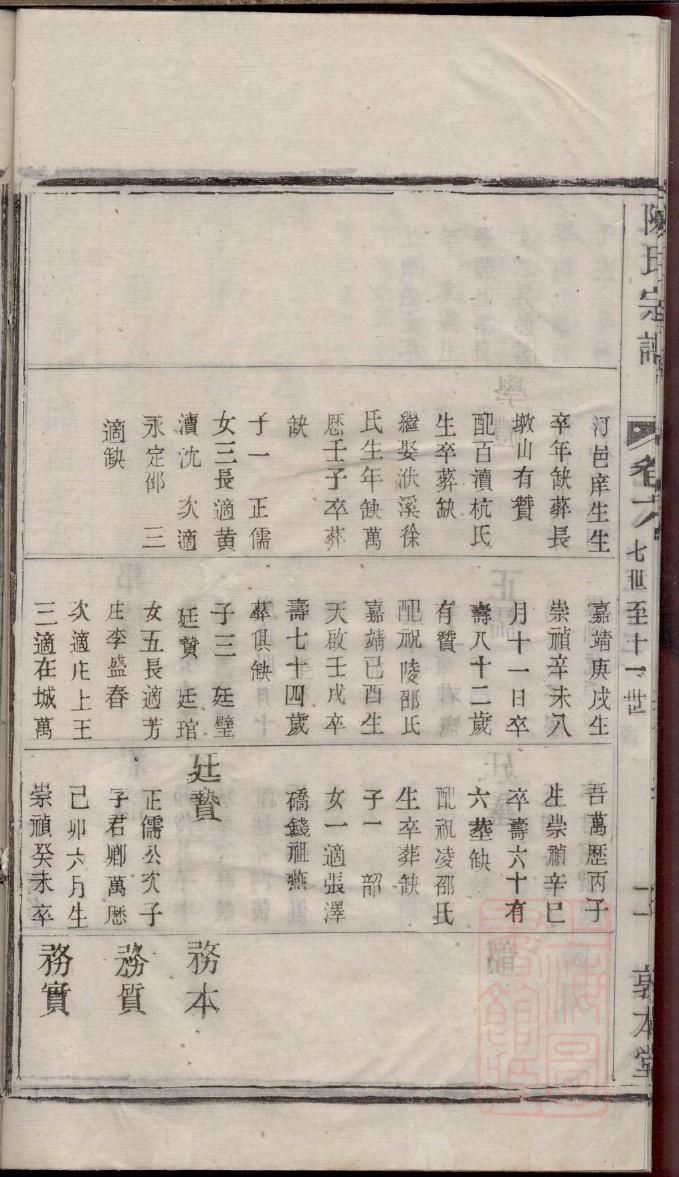 陳氏宗譜
卷六
七世至十一世
敦本堂
邑庠生生
卒年缺葬長
墩山有贊
配百瀆杭氏
生卒葬缺
繼娶洑溪徐
氏生年缺萬
歷壬子卒葬
缺
子一 正儒
女三長適黃
瀆沈 次適
永定邵 三
適缺
嘉靖庚戌生
崇禎辛未八
月十一日卒
壽八十二歲
有贊
配祝陵邵氏
嘉靖已酉生
天啟壬戌卒
壽七十四歲
葬俱缺
子三 廷璧
廷贊 廷琯
女五長適芳
庄李盛春
次適庄上王
三適在城萬
吾萬歷丙子
生崇禎辛巳
卒壽六十有
六塟缺
配祝凌邵氏
生卒葬缺
子一 韶
女一適張澤
橋錢祖燕
廷贊
正儒公次子
子君卿萬歷
己卯六月生
崇禎癸未卒
務本
務質
務實